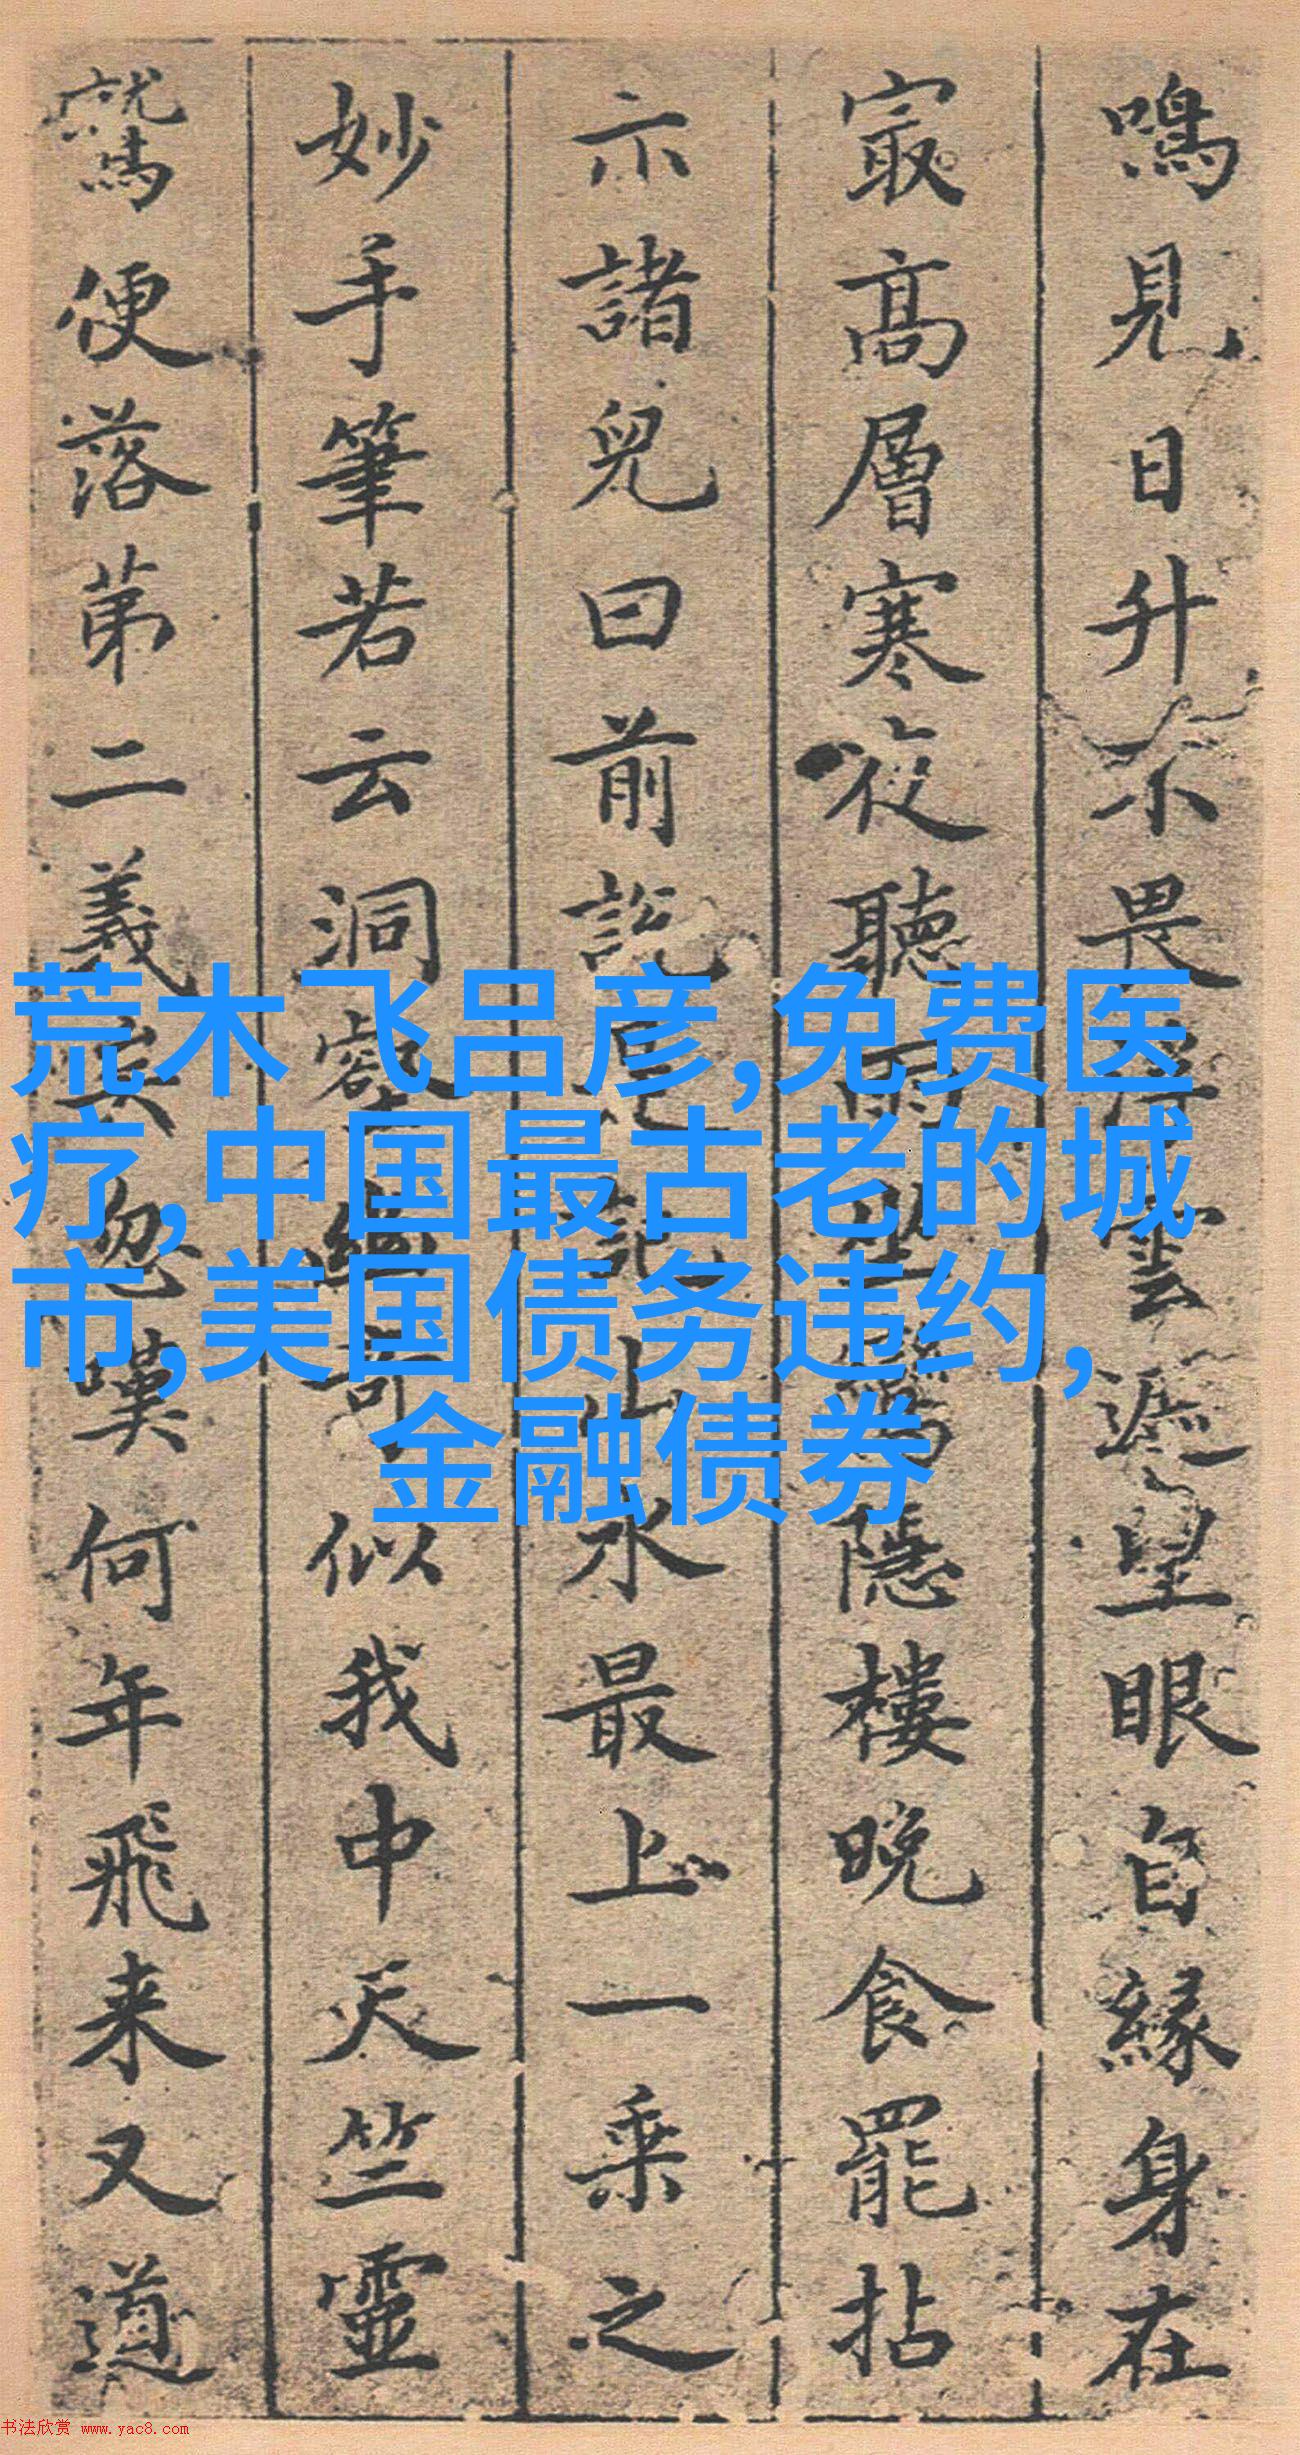 鳴見日升不畏浮雲遮望眼自緣身在
冣高層寒夜聽雨坐隱樓晚食罷拈
示諸兒曰前說記山水最上一乘之
妙手筆若云洞壑幽奇似我中天竺靈
鷲便落苐二義矣忽嘆何年飛来又道
荒木飞吕彦,免费医
疗,中国最古老的城
市,美国债务违约,
金融债券
书法欣赏 www.yac8.com